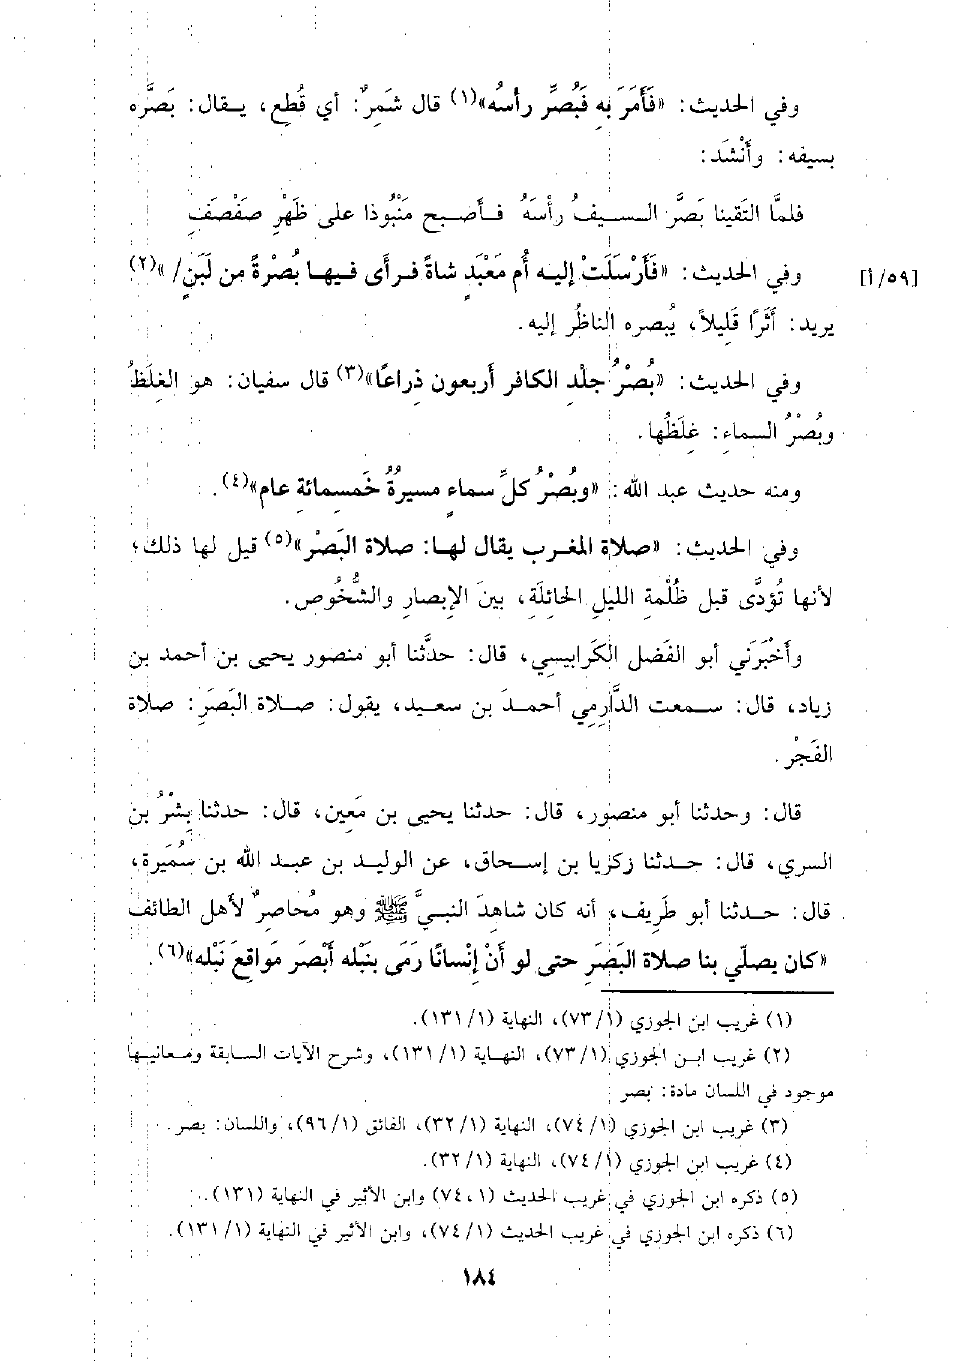 وفي الحديث: «فَأَمَرَ بِه فَبُصِّر رأسُه»(١) قال شَمِرٌ: أي قُطِع، يــقال: بَصَّره
بسيفه: وأَنْشَد:
فلمَّا التَقينا بَصَّر الــســيفُ رأسَهُ فــأصــبح مَنْبُوذا على ظَهْرِ صَفْصَفِ
وفي الحديث: «فَأَرْسَلَتْ إليــه أُم مَعْبَدٍ شاةً فــرأى فــيهــا بُصْرةً من لَبَنٍ/ »(٢) [٥٩/أ]
يريد: أَثَرًا قَلِيلاً، يُبصره الناظُر إليه.
وفي الحديث: «بُصْرُ جلْدِ الكافر أربعون ذِراعًا»(٣) قال سفيان: هو الغلَظُ
وبُصْرُ السماءِ: غلَظُها.
ومنه حديث عبد الله: «وبُصْرُ كلِّ سماءٍ مسيرةُ خَمسِمائةِ عام»(٤).
وفي الحديث: «صلاة المغرب يقال لهــا: صلاة البَصْر»(٥) قيل لها ذلك؛
لأنها تُؤدَّى قبل ظُلْمةِ الليلِ الحائلَةِ، بينَ الإبصارِ والشُّخُوص.
وأَخْبَرَني أبو الفَضل الكَرابيسي، قال: حدَّثنا أبو منصور يحيى بن أحمد بن
زياد، قال: ســمعت الدَّارِمِي أحمــدَ بن سعــيد، يقول: صــلاة البَصَرِ: صلاة
الفَجْرِ.
قال: وحدثنا أبو منصور، قال: حدثنا يحيى بن مَعِين، قال: حدثنا بِشْرُ بن
السري، قال: حــدثنا زكريا بن إســحاق، عن الوليــد بن عبــد الله بن سُمَيرة،
قال: حــدثنا أبو طَرِيف، أنه كان شاهدَ النبيَّ ﷺ وهو مُحاصِرٌ لأهل الطائف
«كان يصلّي بنا صلاة البَصَرِ حتى لو أنْ إنْسانًا رَمَى بنَبْله أَبْصَر مَواقعَ نَبْله»(٦).
(١) غريب ابن الجوزي (٧٣/١)، النهاية (١٣١/١).
(٢) غريب ابــن الجوزي (٧٣/١)، النهــاية (١٣١/١)، وشرح الآيات الســابقة ومــعانيــها
موجود في اللسان مادة: بصر
(٣) غريب ابن الجوزي (٧٤/١)، النهاية (٣٢/١)، الفائق (٩٦/١)، واللسان: بصر.
(٤) غريب ابن الجوزي (٧٤/١)، النهاية (٣٢/١).
(٥) ذكره ابن الجوزي في غريب الحديث (٧٤،١) وابن الأثير في النهاية (١٣١)..
(٦) ذكره ابن الجوزي في غريب الحديث (٧٤/١)، وابن الأثير في النهاية (١٣١/١).
١٨٤